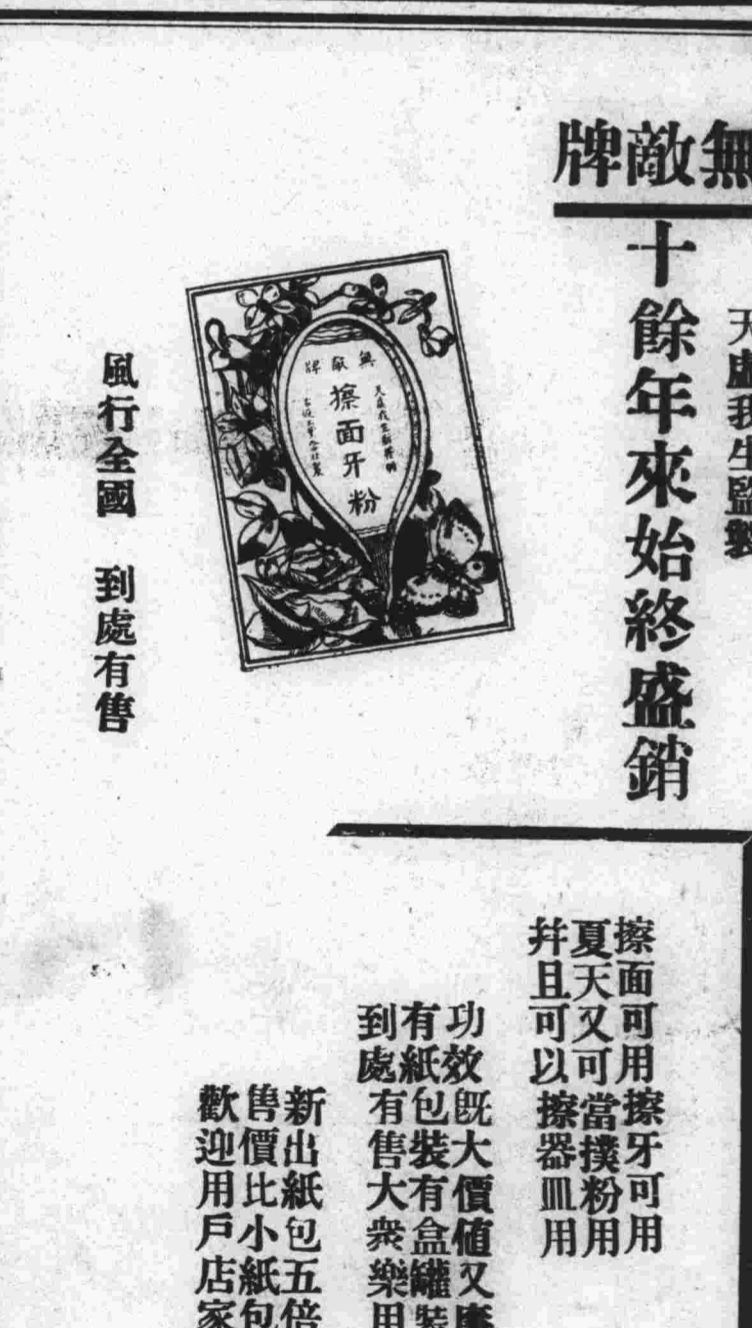 無敵牌
天虛我生監製
十餘年來始終盛銷
無敵牌
擦面牙粉
風行全國 到處有售
擦面可用擦牙可用
夏天又可當撲粉用
幷且可以擦器皿用
功效既大價值又廉
有紙包裝有盒罐裝
到處有售大衆樂用
新出紙包五倍
售價比小紙包
歡迎用戶店家